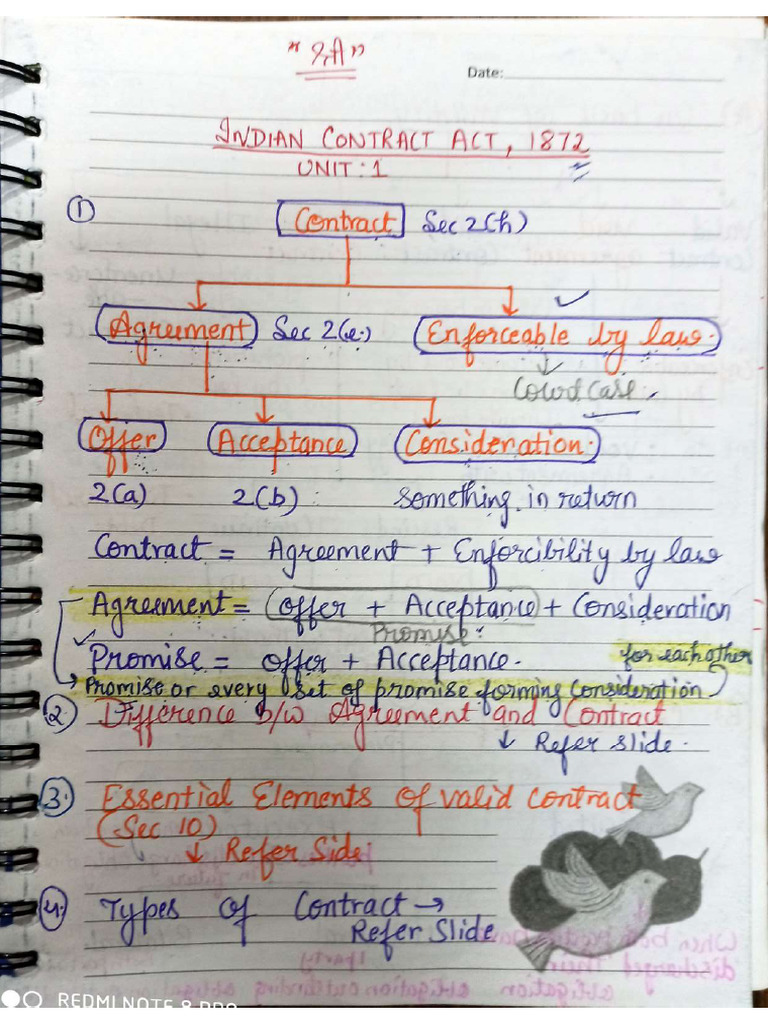 Date:
INDIAN CONTRACT ACT, 1872
UNIT : 1
① Contract Sec 2(h)
Agrument Sec 2(e.) Enforceable by law.
Offer Acceptance Consideration.
2(a) 2(b) : Something in return
Contract = Agreement + Enforcibility by law
Agreement = Offer + Acceptance + Consideration
Promise.
Promise = offer + Acceptance. for each other
Promise or every set of promise forming Consideration
2. Difference b/w Agreement and Contract
↓ Refer slide.
3. Essential Elements Of valid contract
(Sec 10)
↓ Refer Side
4. Types Of Contract →
Refer Slide
REDMI NOTE 8 PRO